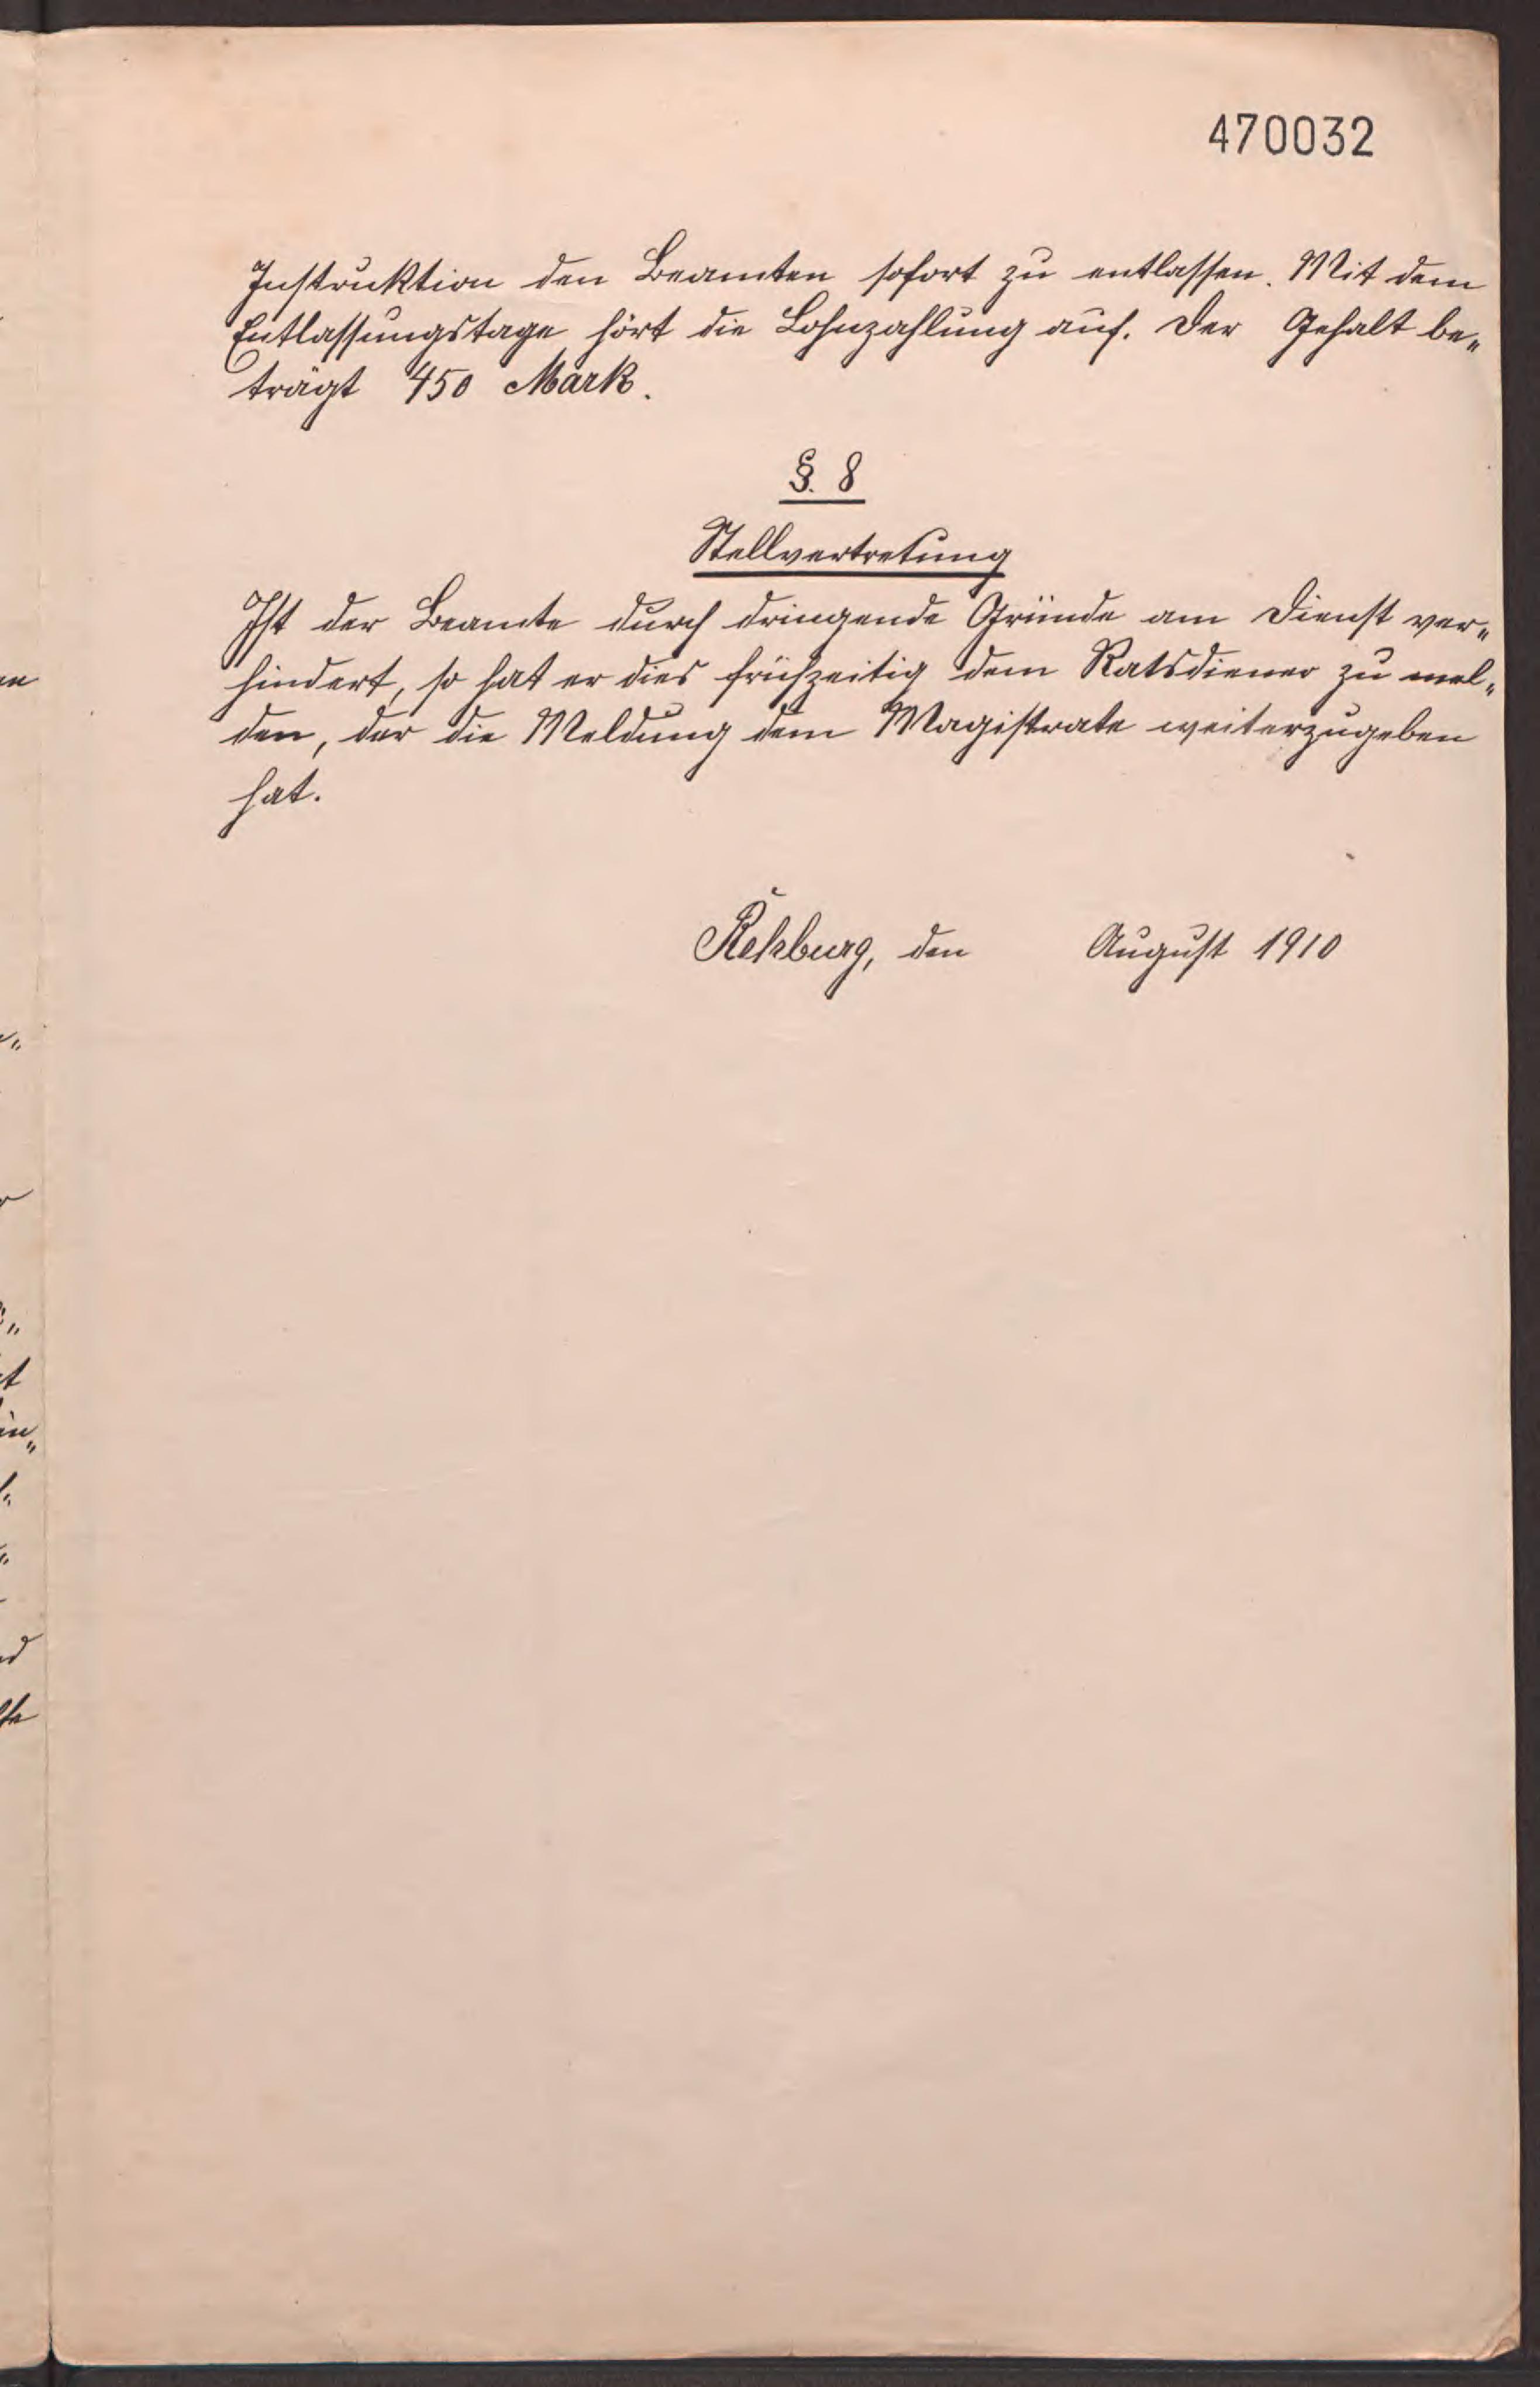 470032
Instruktion den Beamten sofort zu entlassen. Mit dem
Entlassungstage hört die Lohnzahlung auf. Der Gehalt be„
trägt 450 Mark.
§. 8
Stellvertretung
Ist der Beamte durch dringende Gründe am Dienst ver„
hindert, so hat er dies frühzeitig dem Ratsdiener zu mel„
den, der die Meldung dem Magistrate weiterzugeben
hat.
Rehburg, den August 1910